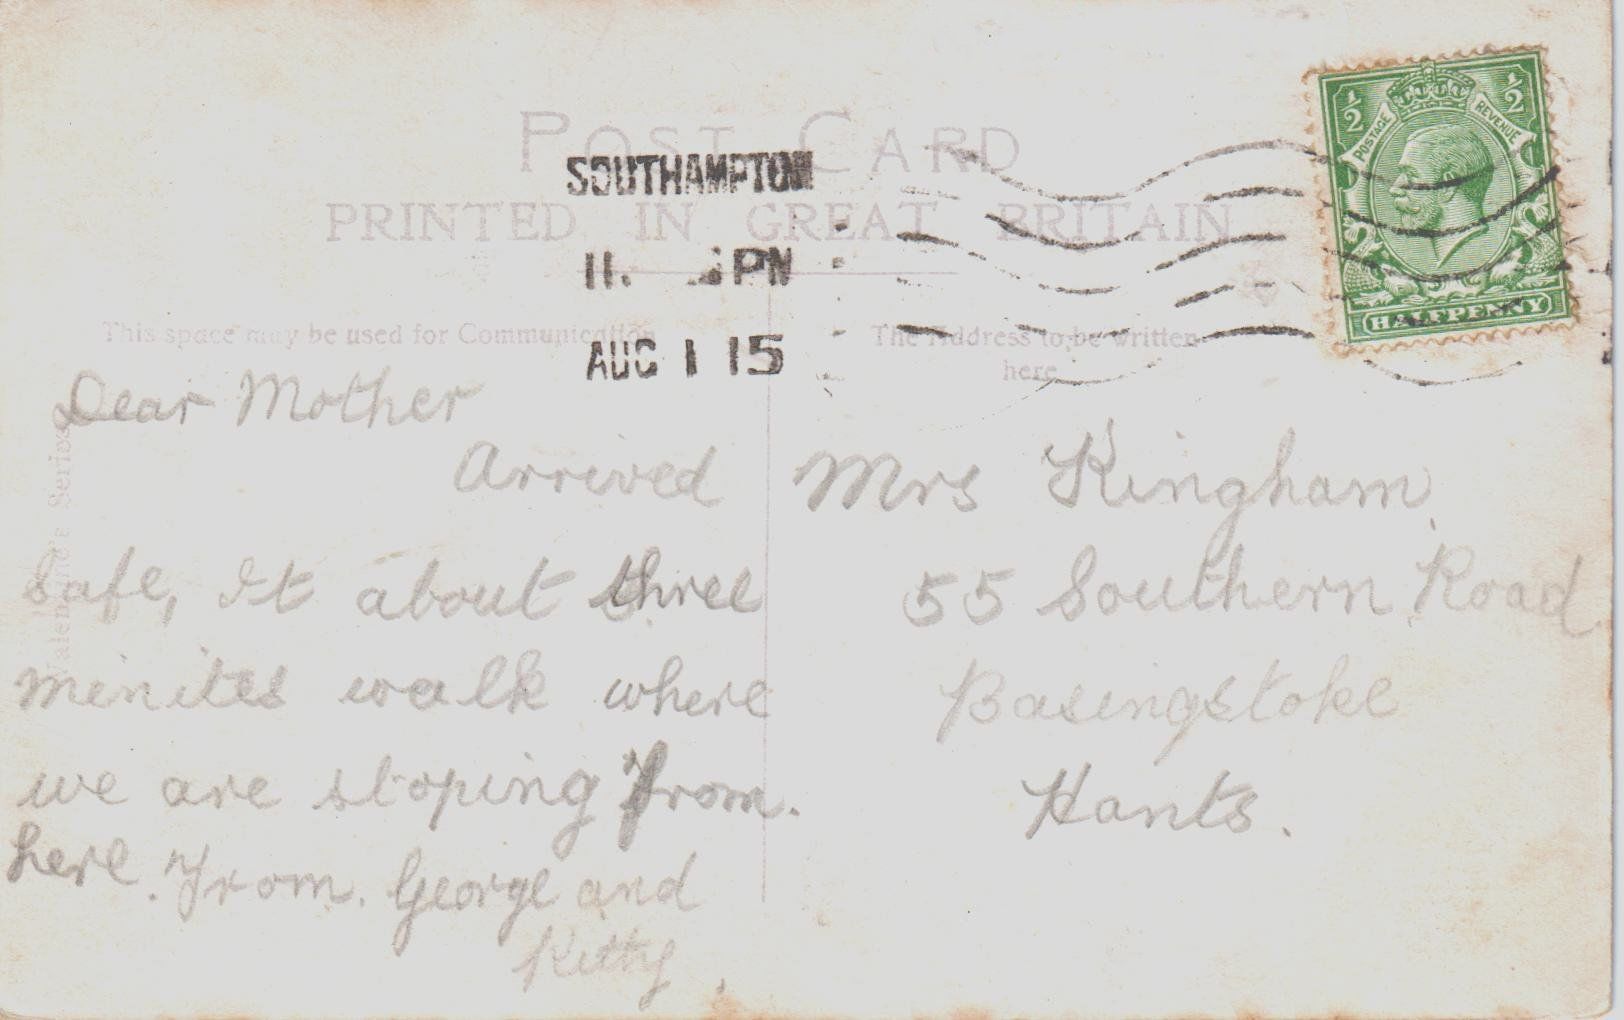 POST CARD
PRINTED IN GREAT BRITAIN
SOUTHAMPTON
11. PM
AUG 1 15
½ ½
POSTAGE REVENUE
HALFPENNY
This space may be used for Communication
The Address to be written
here
Valentine's Series
Dear Mother
Arrived
Safe, It about three
minites walk where
we are stoping From.
here. From. George and
Kitty.
Mrs Kingham.
55 Southern Road
Basingstoke
Hants.